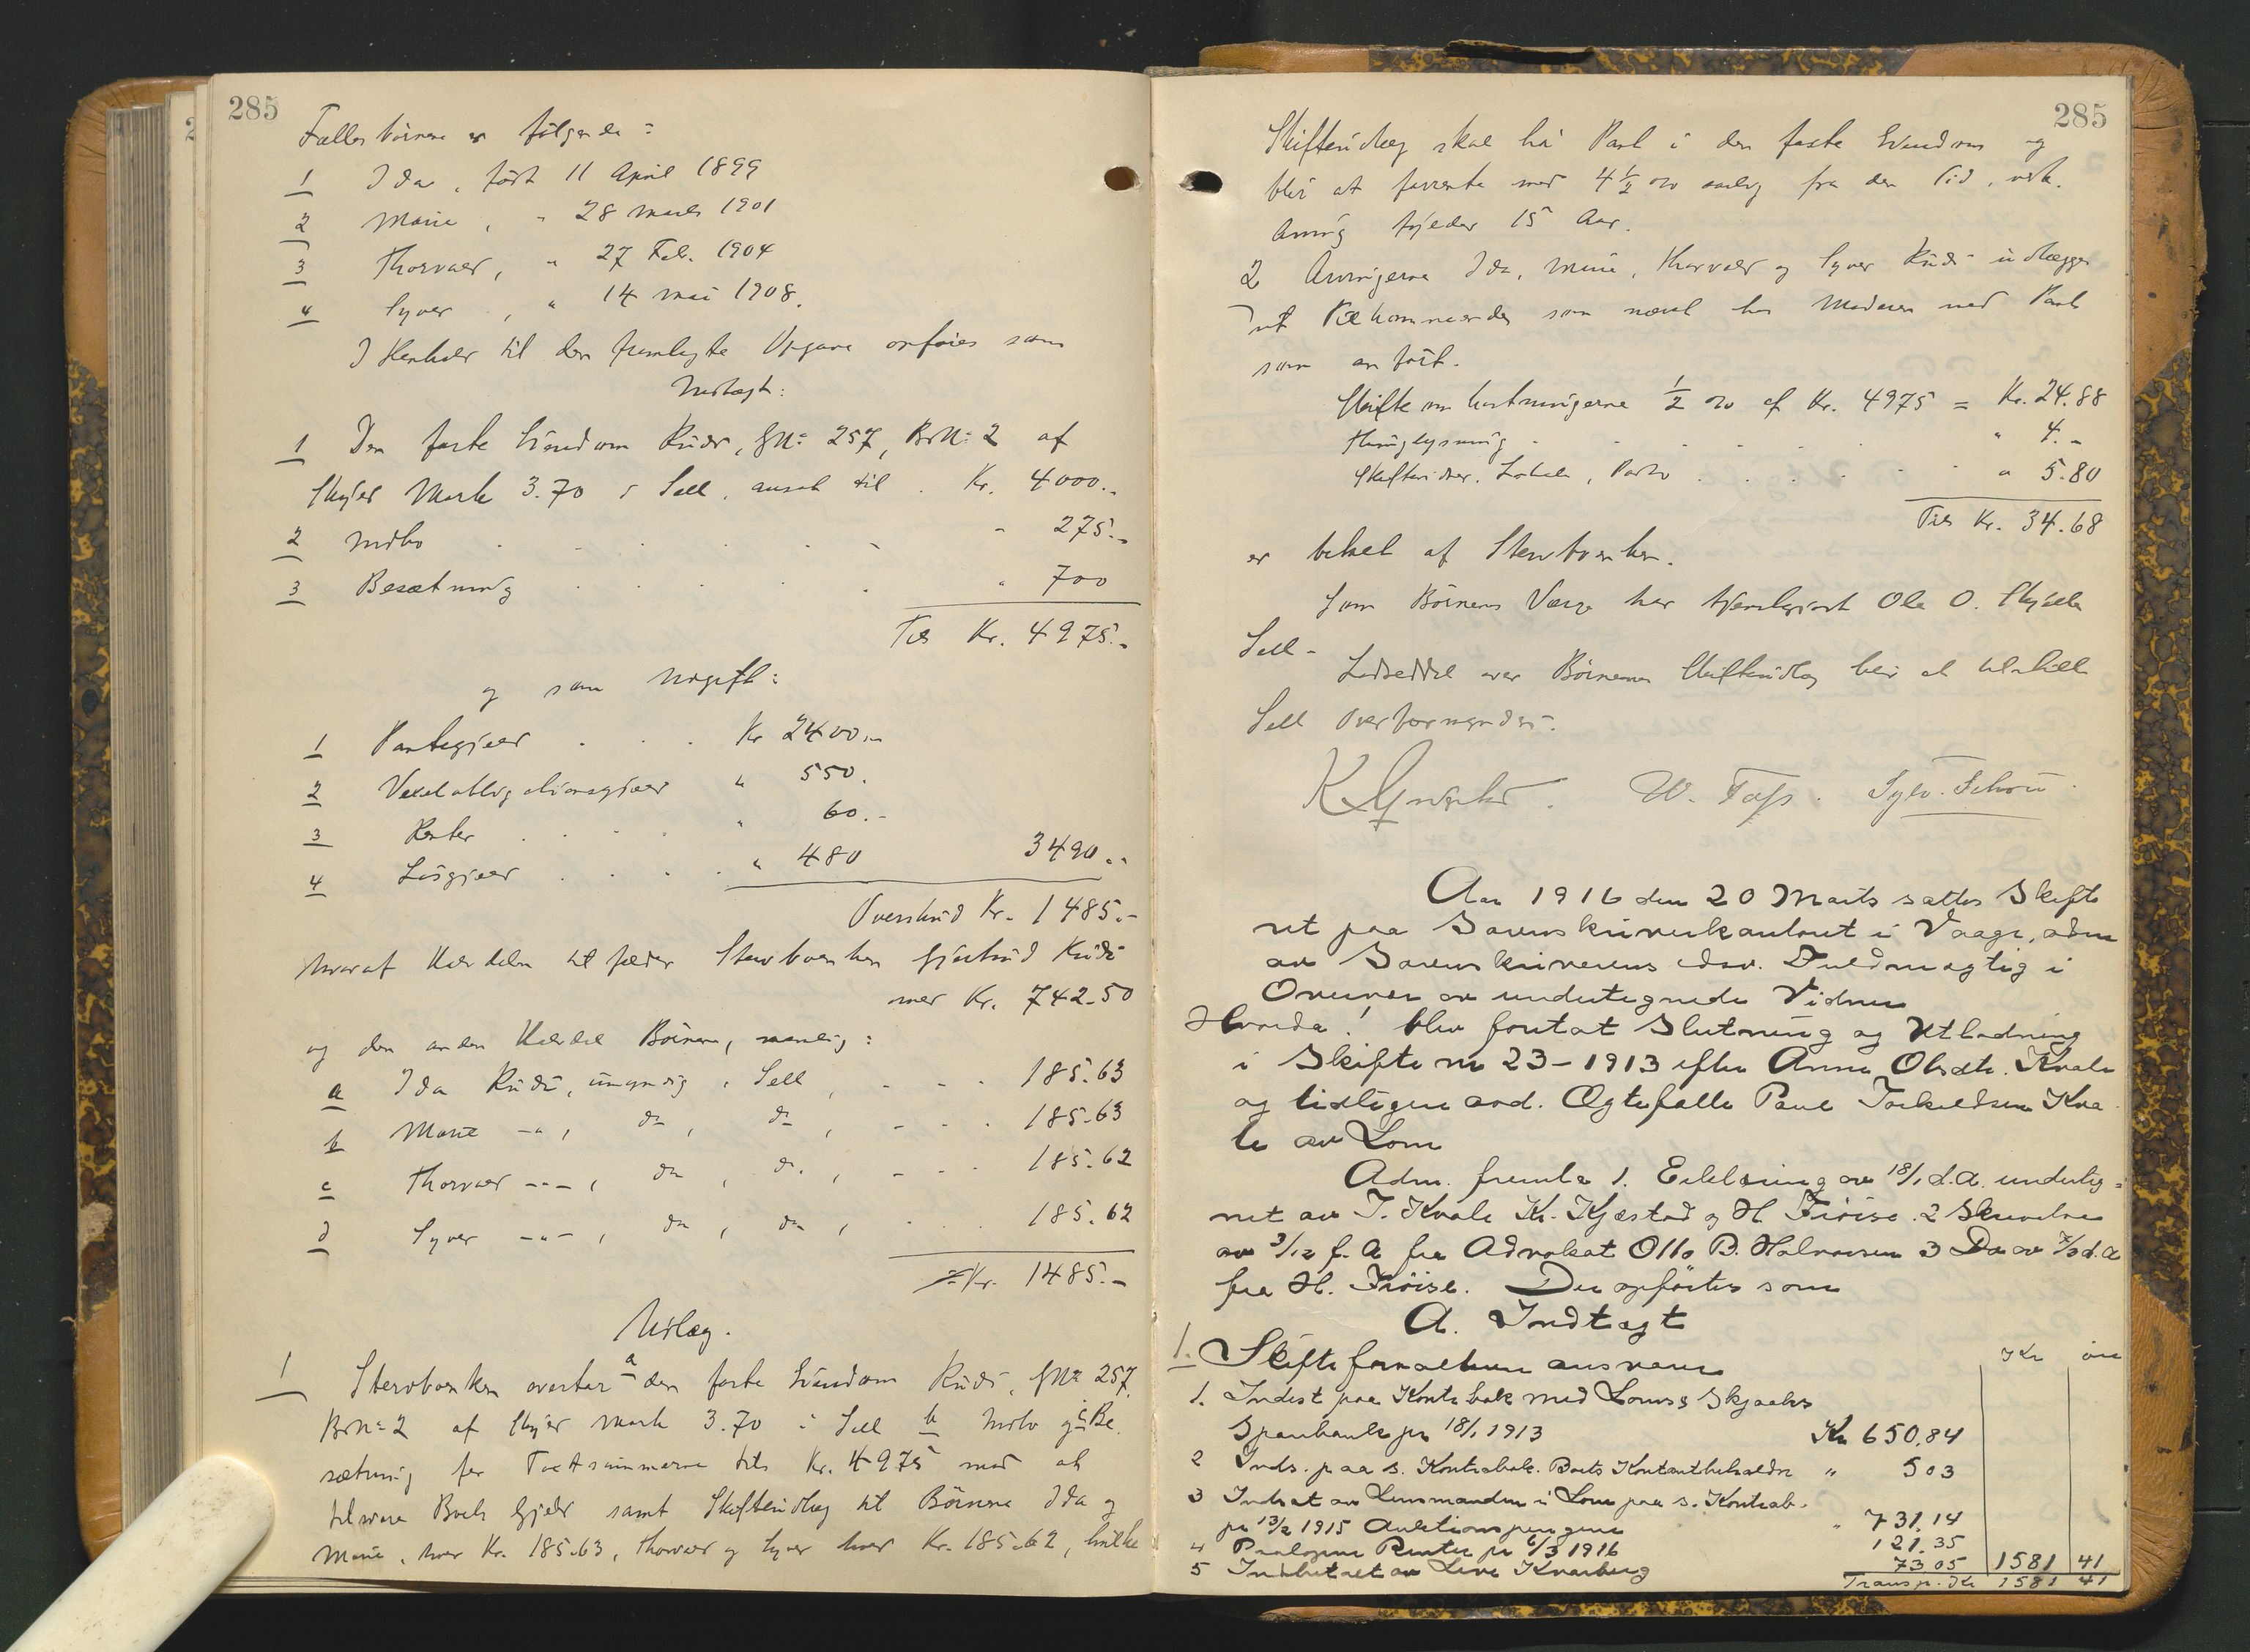 285
Fællesbørnene er følgende:
1 Ida, født 11 April 1899
2 Marie, " 28 marts 1901
3 Thorvald, " 27 Feb. 1904
4 Syver, " 14 mai 1908.
I Henhold til den fremlagte Opgave anføres som
Indtægt:
1 Den faste Eiendom Ruds, GNo 257, BrNo 2 af
Skyld Mark 3.70 i Sell, ansat til . Kr. 4000.-
2 Indbo . . . . . " 275.-
3 Besætning . . . . " 700
Tils Kr. 4975.-
og som Udgift:
1 Pantegjæld . . . Kr 2400.-
2 Vexelobligationsgjæld " 550.
3 Renter . . . " 60.-
4 Løsgjæld . . . . " 480 3490.-
Overskud Kr. 1485.-
hvoraf Halvdelen tilfalder Stervboenken Gjertrud Ruds
med Kr. 742.50
og den anden Halvdel Børnene, nemlig:
a Ida Ruds, umyndig, Sell, - - - 185.63
b Marie -"-, do, do, - - - 185.63
c Thorvald -"-, do, do, - - - 185.62
d Syver -"-, do, do, . . . 185.62
Kr. 1485.-
Udlæg.
1 Stervboenken overtar a den faste Eiendom Ruds, GNo 257,
BrNo 2 af Skyld mark 3.70 i Sell b Indbo og c Be
sætning for Taxtsummerne tils Kr. 4975 mod at
tilsvare Boets Gjæld samt Skifteudlæg til Børnene Ida og
Marie, hver Kr. 185.63, Thorvald og Syver hver Kr. 185.62, hvilke
285
Skifteudlæg skal ha Pant i den faste Eiendom og
blir at forrente med 4 1/2 % aarlig fra den Tid, ved.
Arving fylder 15 Aar.
2 Arvingerne Ida, Marie, Thorvald og Syver Ruds udlægges
det Tilkommende som nævnt hos Moderen med Pant
som anført.
Skifteomkostningerne 1/2 % af Kr. 4975 = Kr. 24.88
Thinglysning . . . . . " 4.-
Skiftevidner, Lokale, Porto . . . . " 5.80
Tils Kr. 34.68
er betalt af Stervboenken.
Som Børnens Værge har tjenstgjort Ole O.
Sell.
Lodseddel over Børnenes Skifteudlæg blir at tilstille
Sell Overformynderi.
W. Sylv. Schou
Aar 1916 den 20 Marts sattes Skifte
ret paa Sorenskriverkontoret i Vaage, adm
av Sorenskriverens edsv. Fuldmægtig i
Overvær av undertegnede Vidner
Hvorda! blev foretat Slutning og Utlodning
i Skifte no 23-1913 efter Anne Olsdtr. Kvale
og tidligere avd. Ægtefælle Paul Torkeldsen Kva
le av Lom
Adm. fremla 1. Erklæring av 18/1 d.A. underteg=
net av T. Kvale Kr. Kjæstad og H Frøise. 2 Skrivelse
av 3/12 f.A fra Advokat Otto B. Halvorsen 3 Do av 7/3 d.A
fra H. Frøise. Der opførtes som
A. Indtægt
1. Skifteforvalteren ansvarer Kr øre
1. Indest paa Kontrabok med Loms & Skjaaks
Sparebank pr 18/1 1913 Kr 650,84
2 Inds. paa s. Kontrabok. Boets Kontantbeholdn " 503
3 Indsat av Lensmanden i Lom paa s. Kontrab.
pr 13/2 1915 Auktionspengene " 731,14
4 Paaløpne Renter pr 6/3 1916 121.35
5 Indbetalt av Kvarberg 73.05 1581 41
Transp. Kr 1581 41